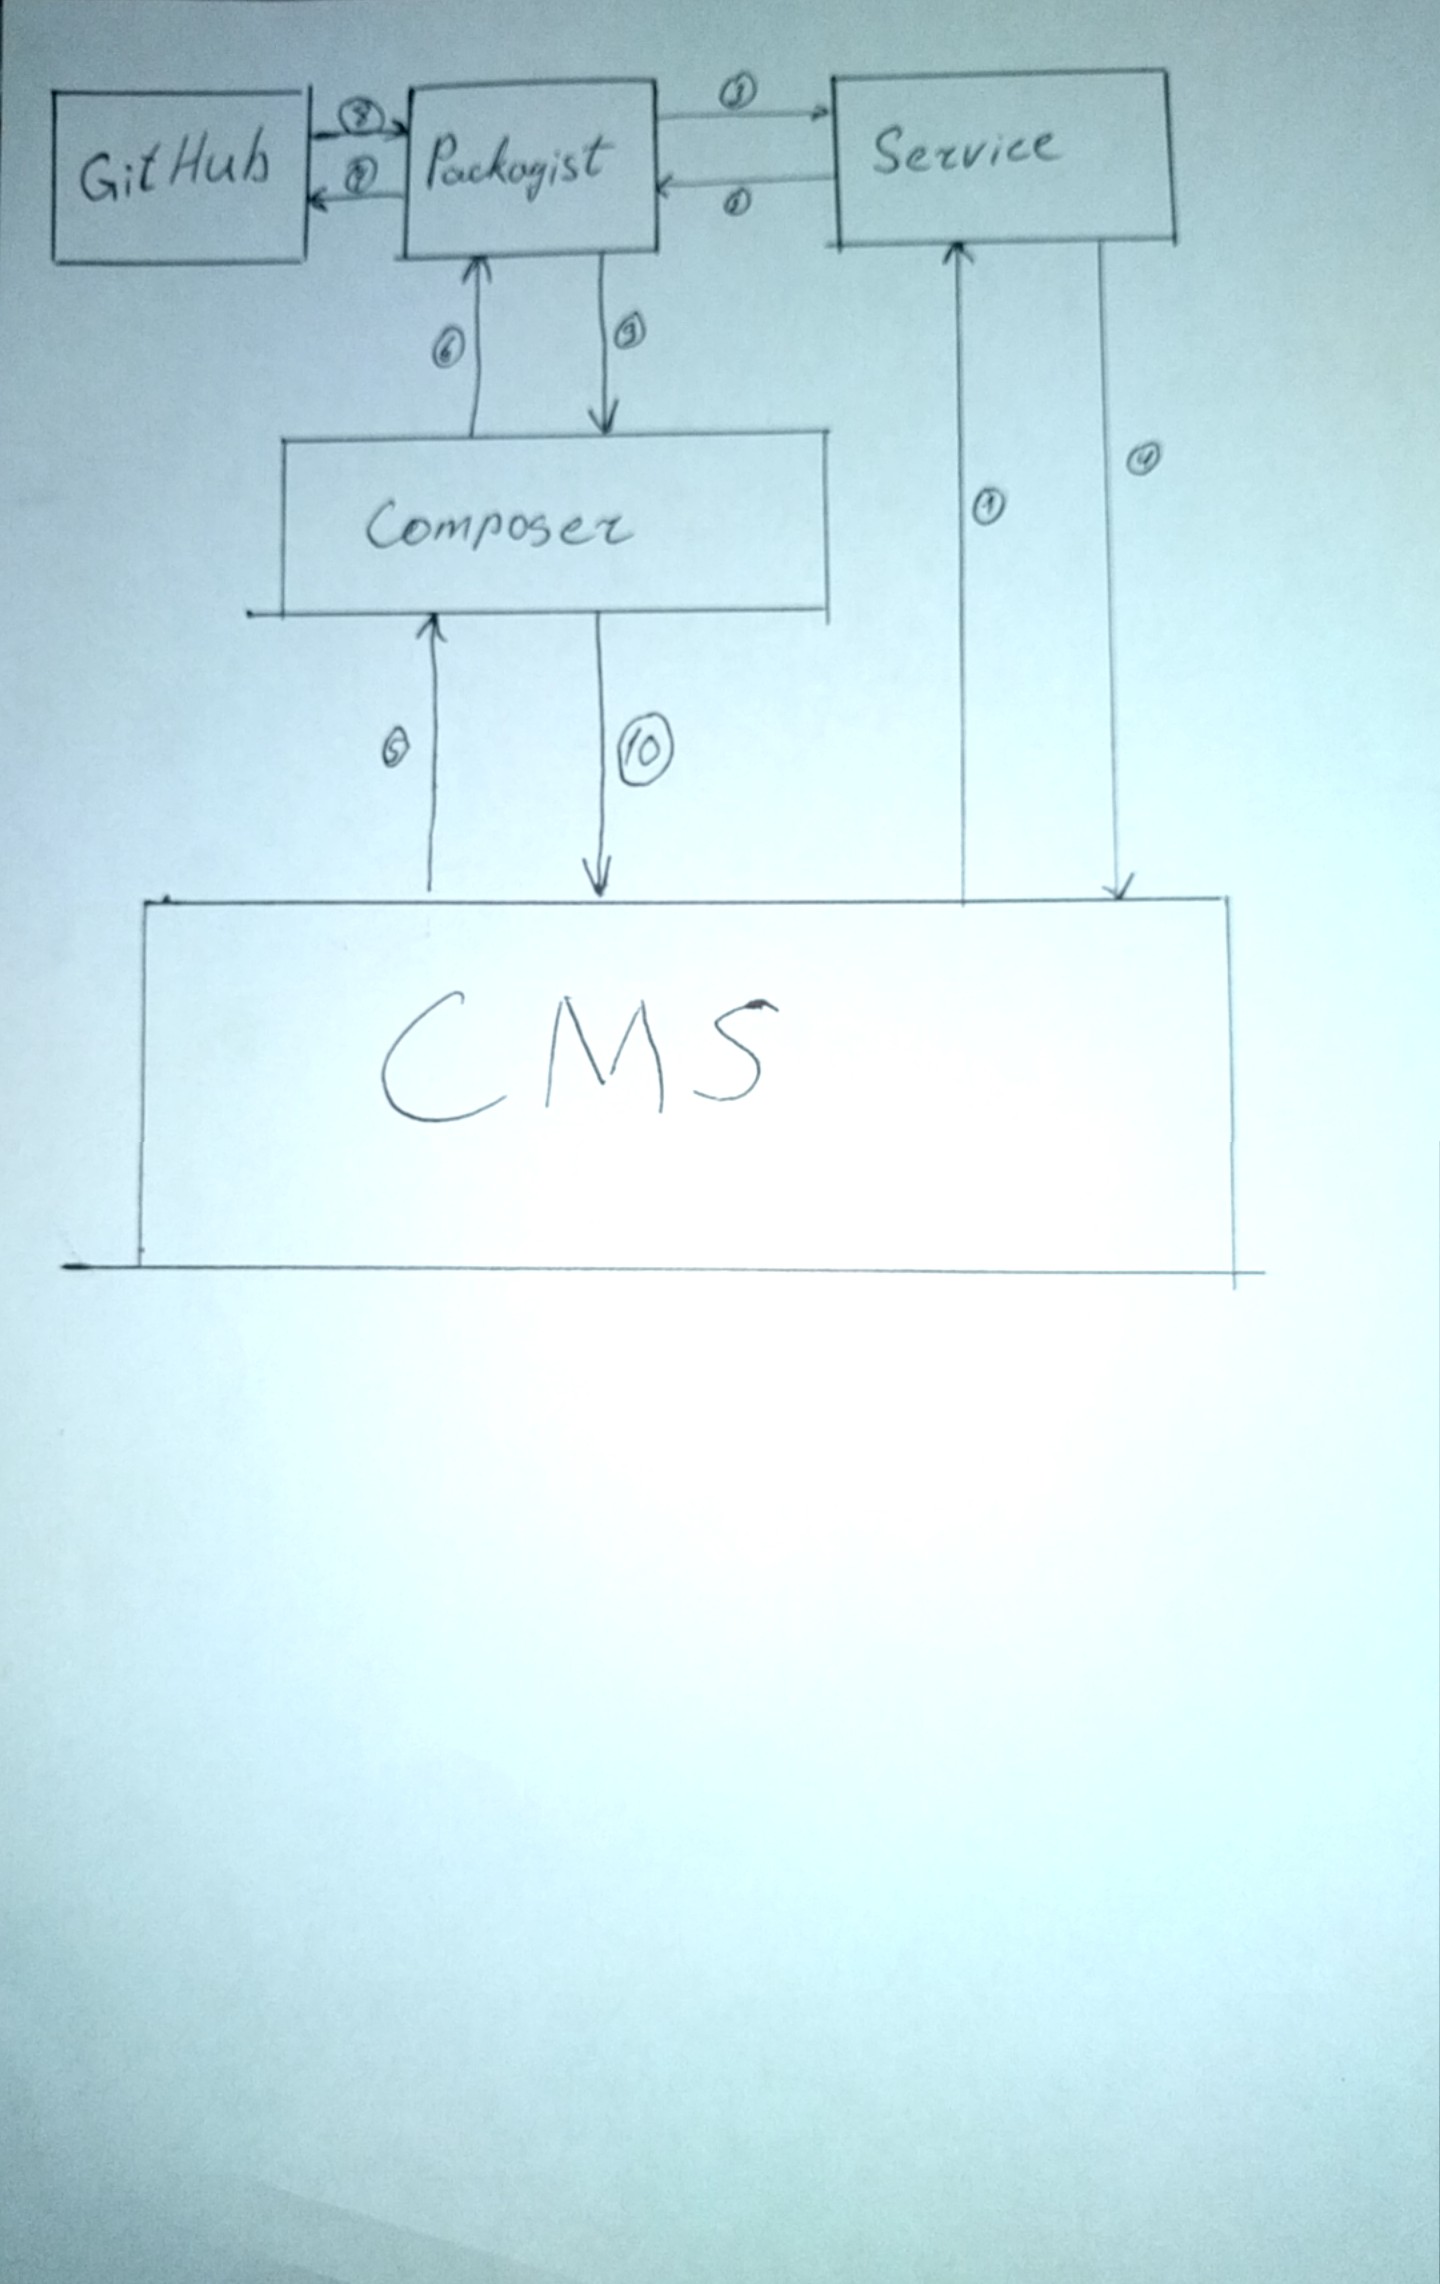 GitHub
8
7
Packagist
3
2
Service
6
9
Composer
1
4
5
10
CMS